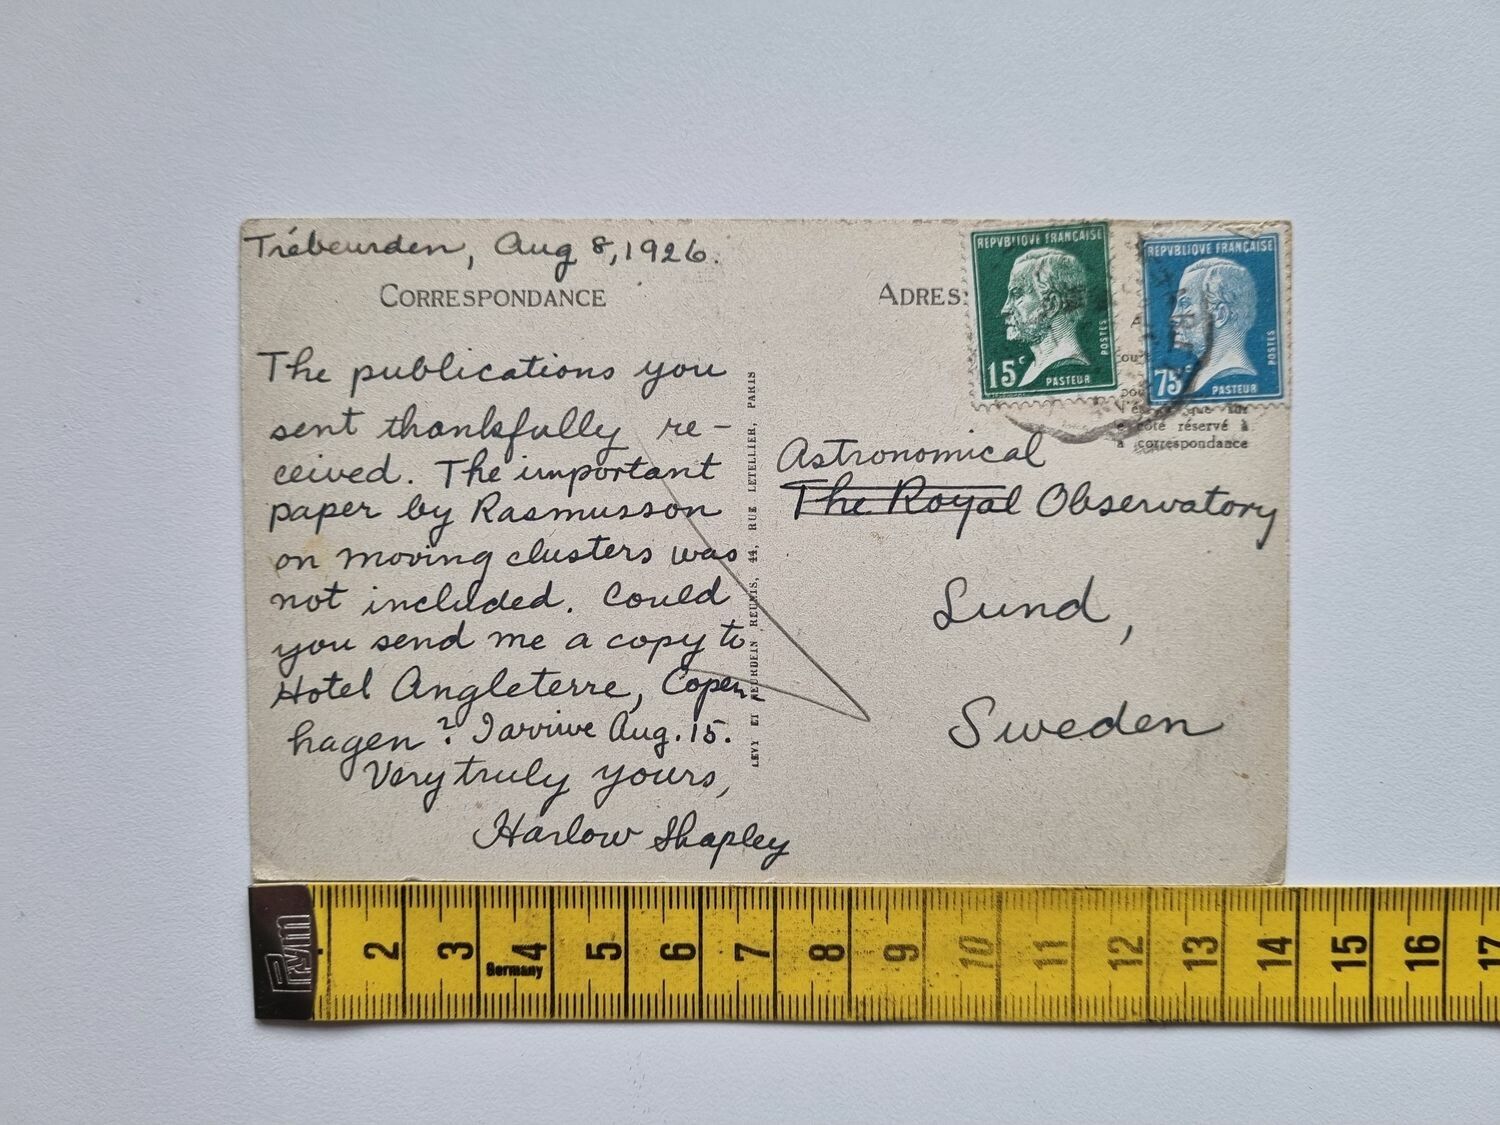 Trébeurden, Aug 8, 1926.
CORRESPONDANCE
The publications you
sent thankfully re-
ceived. The important
paper by Rasmusson
on moving clusters was
not included. Could
you send me a copy to
Hotel Angleterre, Copen,
hagen? I arrive Aug. 15.
Very truly yours,
Harlow Shapley
LEVY ET NEURDEIN REUNIS, 44, RUE LETELLIER, PARIS
ADRES
REPVBLIQVE FRANÇAISE
15c
PASTEUR
POSTES
REPVBLIQVE FRANÇAISE
75c
PASTEUR
POSTES
que sur
e côté réservé à
a correspondance
Astronomical
The Royal Observatory
Lund,
Sweden
Prym
2 3 4 5 6 7 8 9 10 11 12 13 14 15 16 17
Germany